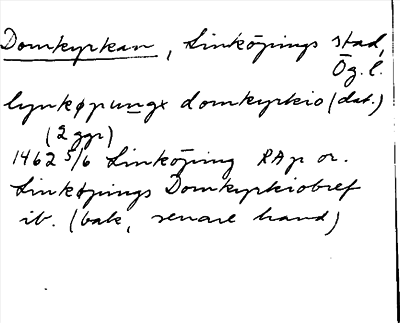 Domkyrkan, Linköpings stad,
Ög. l.
lynkøpungx domkyrkio (dat.)
(2 ggr)
1462 5/6 Linköping RAp or.
Linköpings Domkyrkiobref
ib. (bak, senare hand)